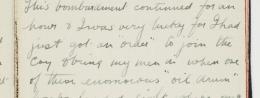 This bombardment continued for an
hour & I was very lucky for I had
just got an "order" to join the
Coy & bring my men in when one
of their enormous "oil drum"